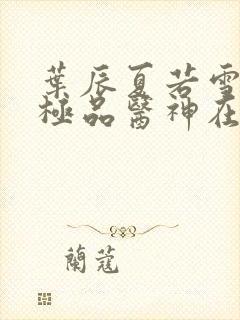 葉辰夏若雪
極品醫神在
蘭蔻